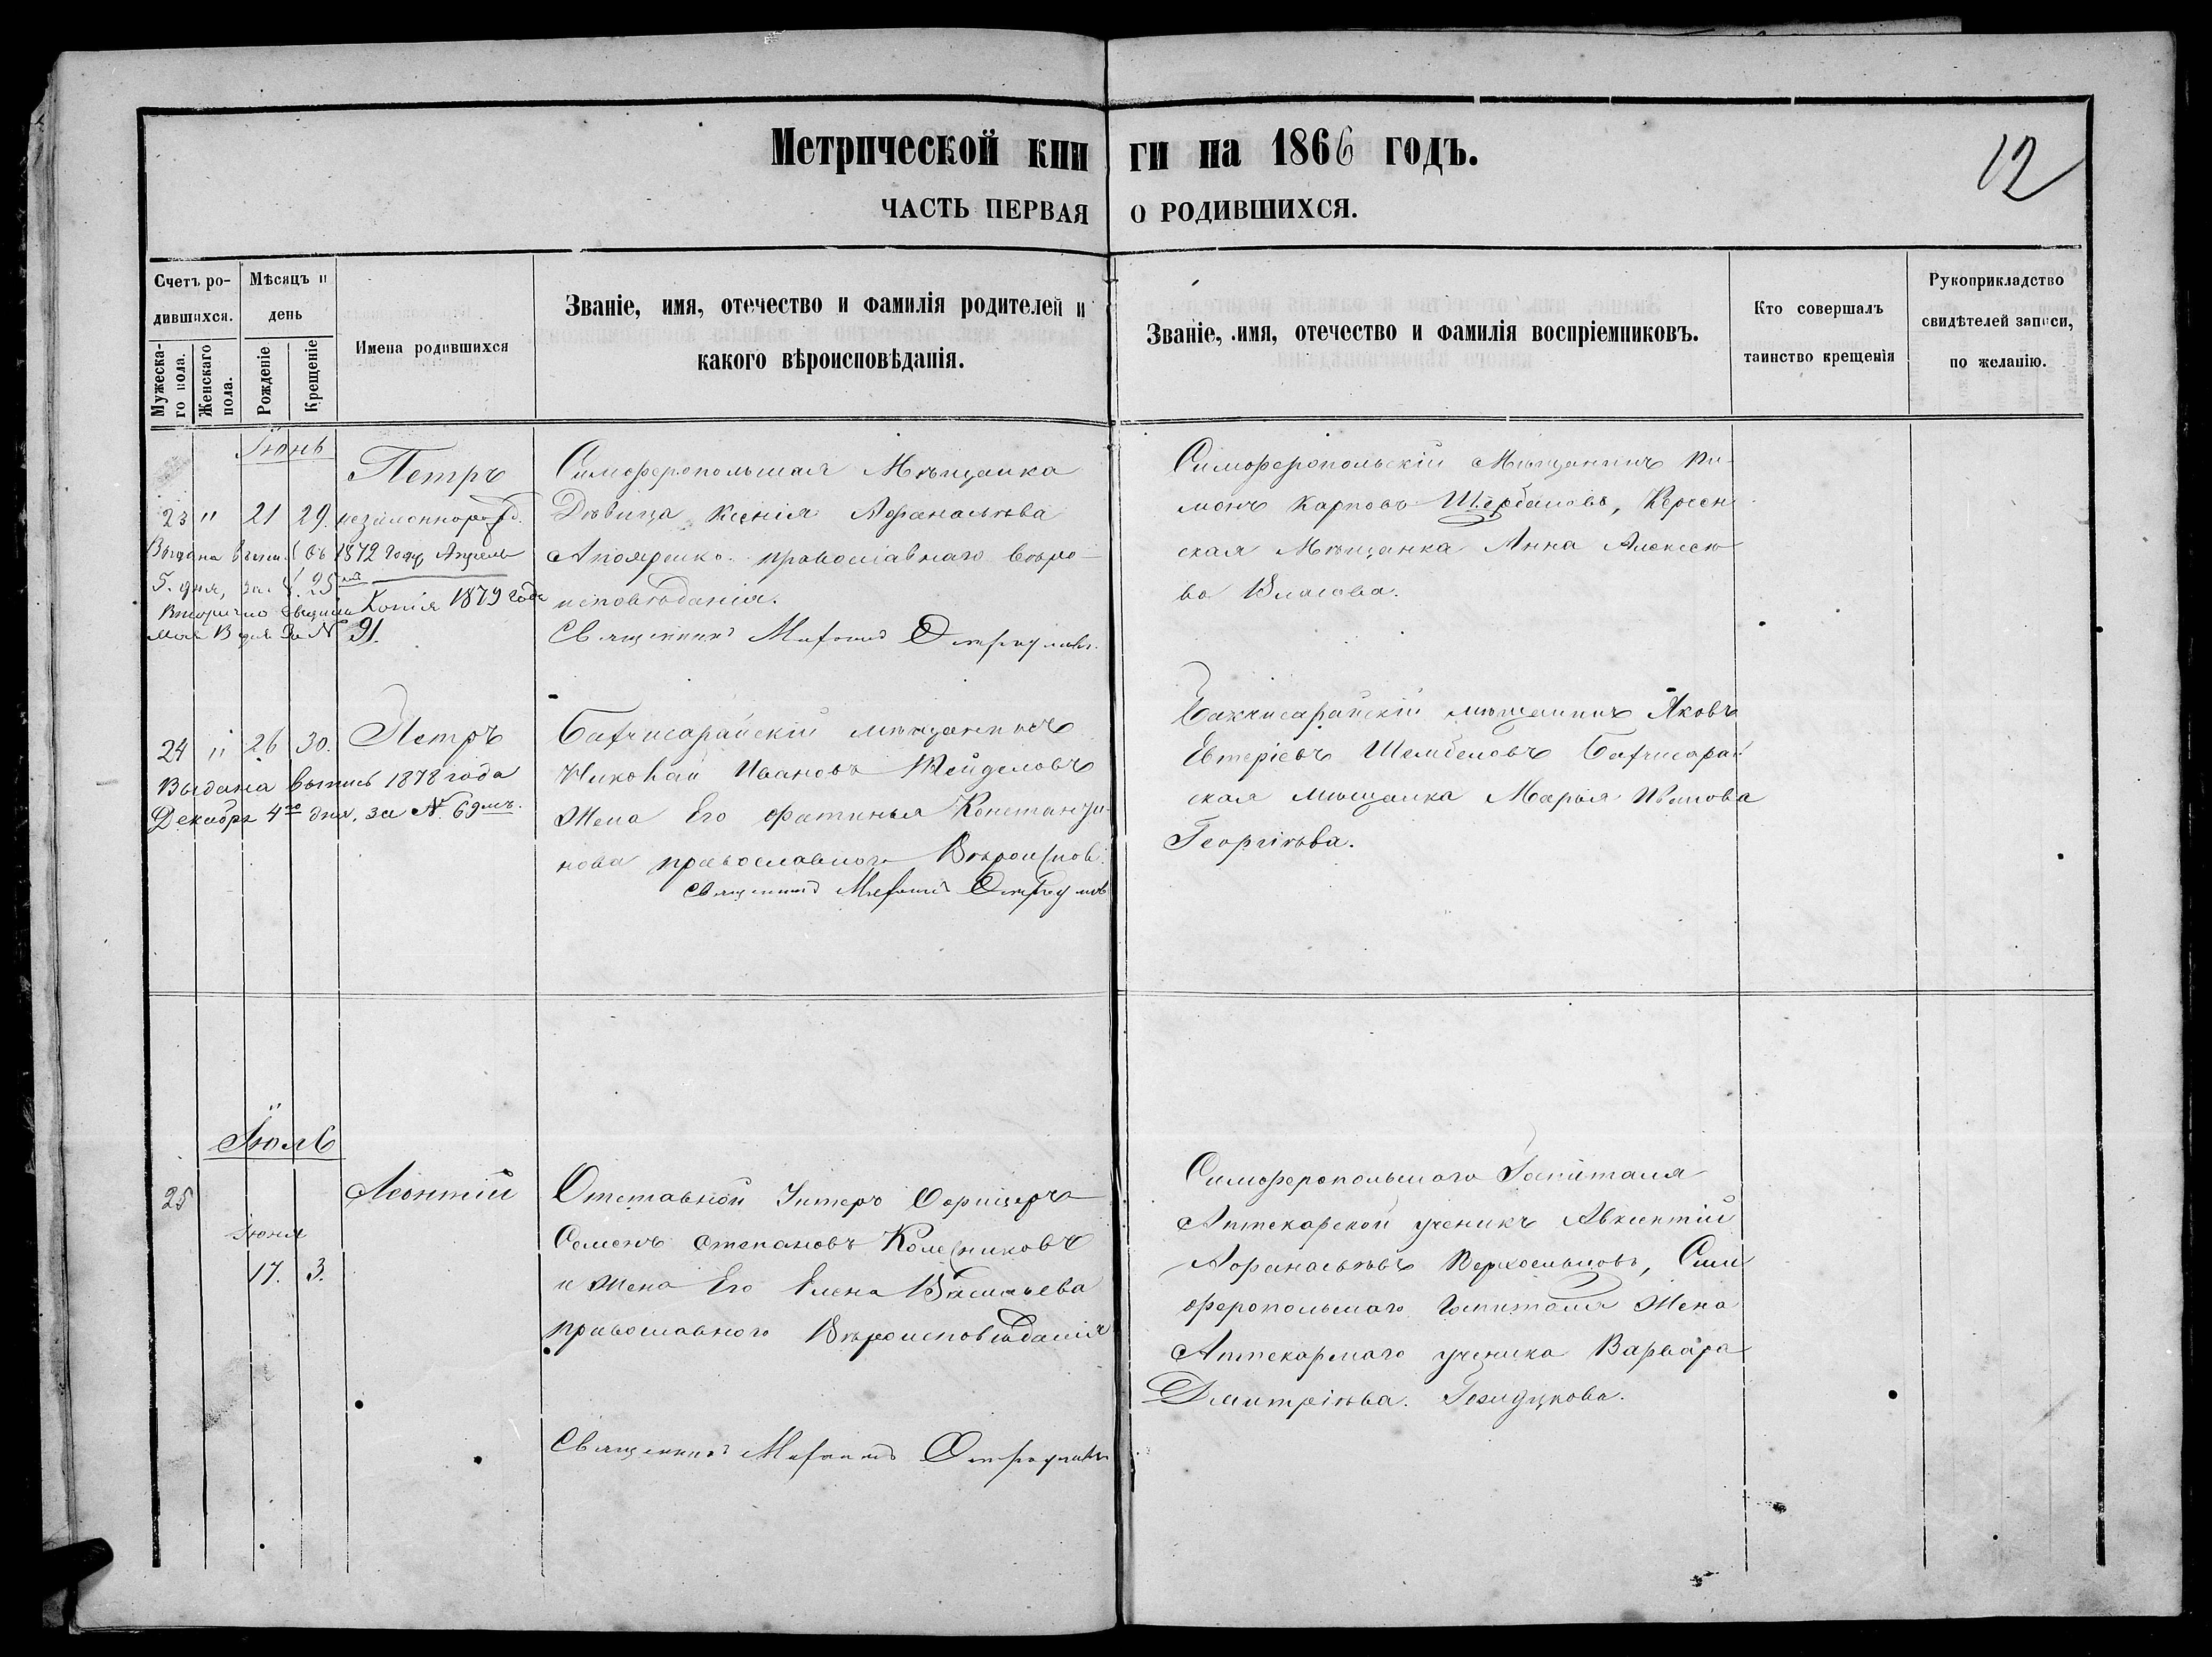 Метрической кни ги на 1866 годъ.
12
ЧАСТЬ ПЕРВАЯ О РОДИВШИХСЯ.
Счетъ ро-
дившихся.
Мужеска-
го пола.
Женскаго
пола.
Мѣсяцъ и
день
Рожденіе
Крещеніе
Имена родившихся
Званіе, имя, отечество и фамилія родителей и
какого вѣроисповѣданія.
Званіе, имя, отечество и фамилія воспріемниковъ.
Кто совершалъ
таинство крещенія
Рукоприкладство
свидѣтелей записи,
по желанію.
Іюнь
23 " 21 29.
Петръ
незаконнорожд.
Выдана выпи. въ 1872 году Апреля
5. дня, за №. 25
Вторично Копія 1879 года
мая 3 дня За № 91.
Симферопольская Мѣщанка
Дѣвица Ксенія Афанасьева
православнаго вѣро-
исповѣданія.
Священникъ
Симферопольскій Мѣщанинъ
Карповъ Щербаковъ, Херсон
ская Мѣщанка Анна Алексѣе
ва Власова.
24 " 26 30.
Петръ
Выдана выпись 1878 года
Декабря 4го дня, за № 69мъ.
Бахчисарайскій мѣщанинъ
Николай Ивановъ
Жена Его Фатинья Константи-
нова православнаго Вѣроиспов.
Священникъ
Бахчисарайскій мѣщанинъ Яковъ
Бахчисарай
ская мѣщанка Марья Иванова
Георгіева.
Іюль
25
Іюня
17. 3.
Леонтій
Отставной Унтеръ Офицеръ
Семенъ Степановъ Колесниковъ
и Жена Его Елена Васильева
православнаго Вѣроисповѣданія
Священникъ
Симферопольскаго Госпиталя
Аптекарской ученикъ Авксентій
Афанасьевъ Сим
феропольскаго Госпиталя Жена
Аптекарскаго ученика Варвара
Дмитріева.